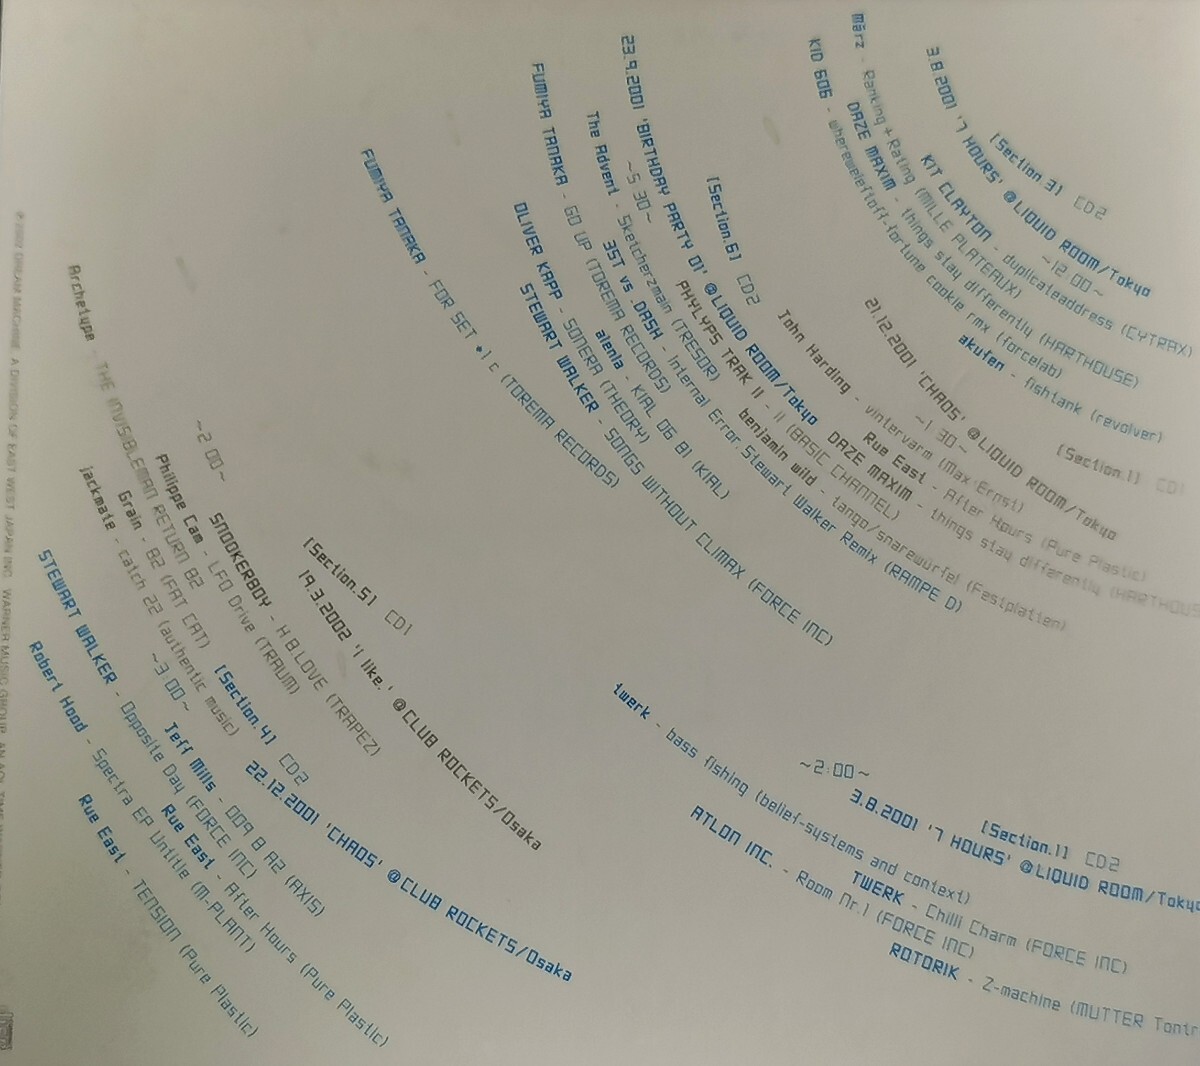 [Section.3] CD2
3.8.2001 '7 HOURS' @LIQUID ROOM/Tokyo
~12:00~
KIT CLAYTON - duplicateaddress (CYTRAX)
märz - Ranking + Rating (MILLE PLATEAUX)
DAZE MAXIM - things stay differently (HARTHOUSE)
KID 606 - whereweleftoff-fortune cookie rmx (forcelab)
akufen - fishtank (revolver)
[Section.1] CD1
21.12.2001 'CHAOS' @LIQUID ROOM/Tokyo
~1:30~
Rue East - After Hours (Pure Plastic)
John Harding - vintervarm (Max Ernst)
DAZE MAXIM - things stay differently (HARTHOUS
PHYLYPS TRAK II - II (BASIC CHANNEL)
benjamin wild - tango/snarewürfel (Festplatten)
[Section.6] CD2
23.9.2001 'BIRTHDAY PARTY 01' @LIQUID ROOM/Tokyo
~5:30~
The Advent - Sketcherzmain (TRESOR)
3ST vs .DASH - Internal Error.Stewart Walker Remix (RAMPE D)
FUMIYA TANAKA - GO UP (TOREMA RECORDS)
alenla - KIAL 06 B1 (KIAL)
OLIVER KAPP - SONERA (THEORY)
STEWART WALKER - SONGS WITHOUT CLIMAX (FORCE INC)
FUMIYA TANAKA - FOR SET #1 c (TOREMA RECORDS)
[Section.5] CD1
19.3.2002 'I like.' @CLUB ROCKETS/Osaka
~2:00~
SNOOKERBOY - H B LOVE (TRAPEZ)
Philippe Cam - LFO Drive (TRAUM)
Archetype - THE INVISIBLEMAN RETURN B2
Grain - B2 (FAT CAT)
jackmate - catch 22 (authentic music)
[Section.4] CD2
22.12.2001 'CHAOS' @CLUB ROCKETS/Osaka
~3:00~
Jeff Mills - 009 B A2 (AXIS)
STEWART WALKER - Opposite Day (FORCE INC)
Rue East - After Hours (Pure Plastic)
Robert Hood - Spectra EP Untitle (M-PLANT)
Rue East - TENSION (Pure Plastic)
[Section.1] CD2
3.8.2001 '7 HOURS' @LIQUID ROOM/Tokyo
~2:00~
twerk - bass fishing (belief-systems and context)
TWERK - Chilli Charm (FORCE INC)
ATLON INC. - Room Nr.1 (FORCE INC)
ROTORIK - Z-machine (MUTTER Tontr
℗ 2002 DREAM MACHINE. A DIVISION OF EAST WEST JAPAN INC. WARNER MUSIC GROUP, AN AOL TIME